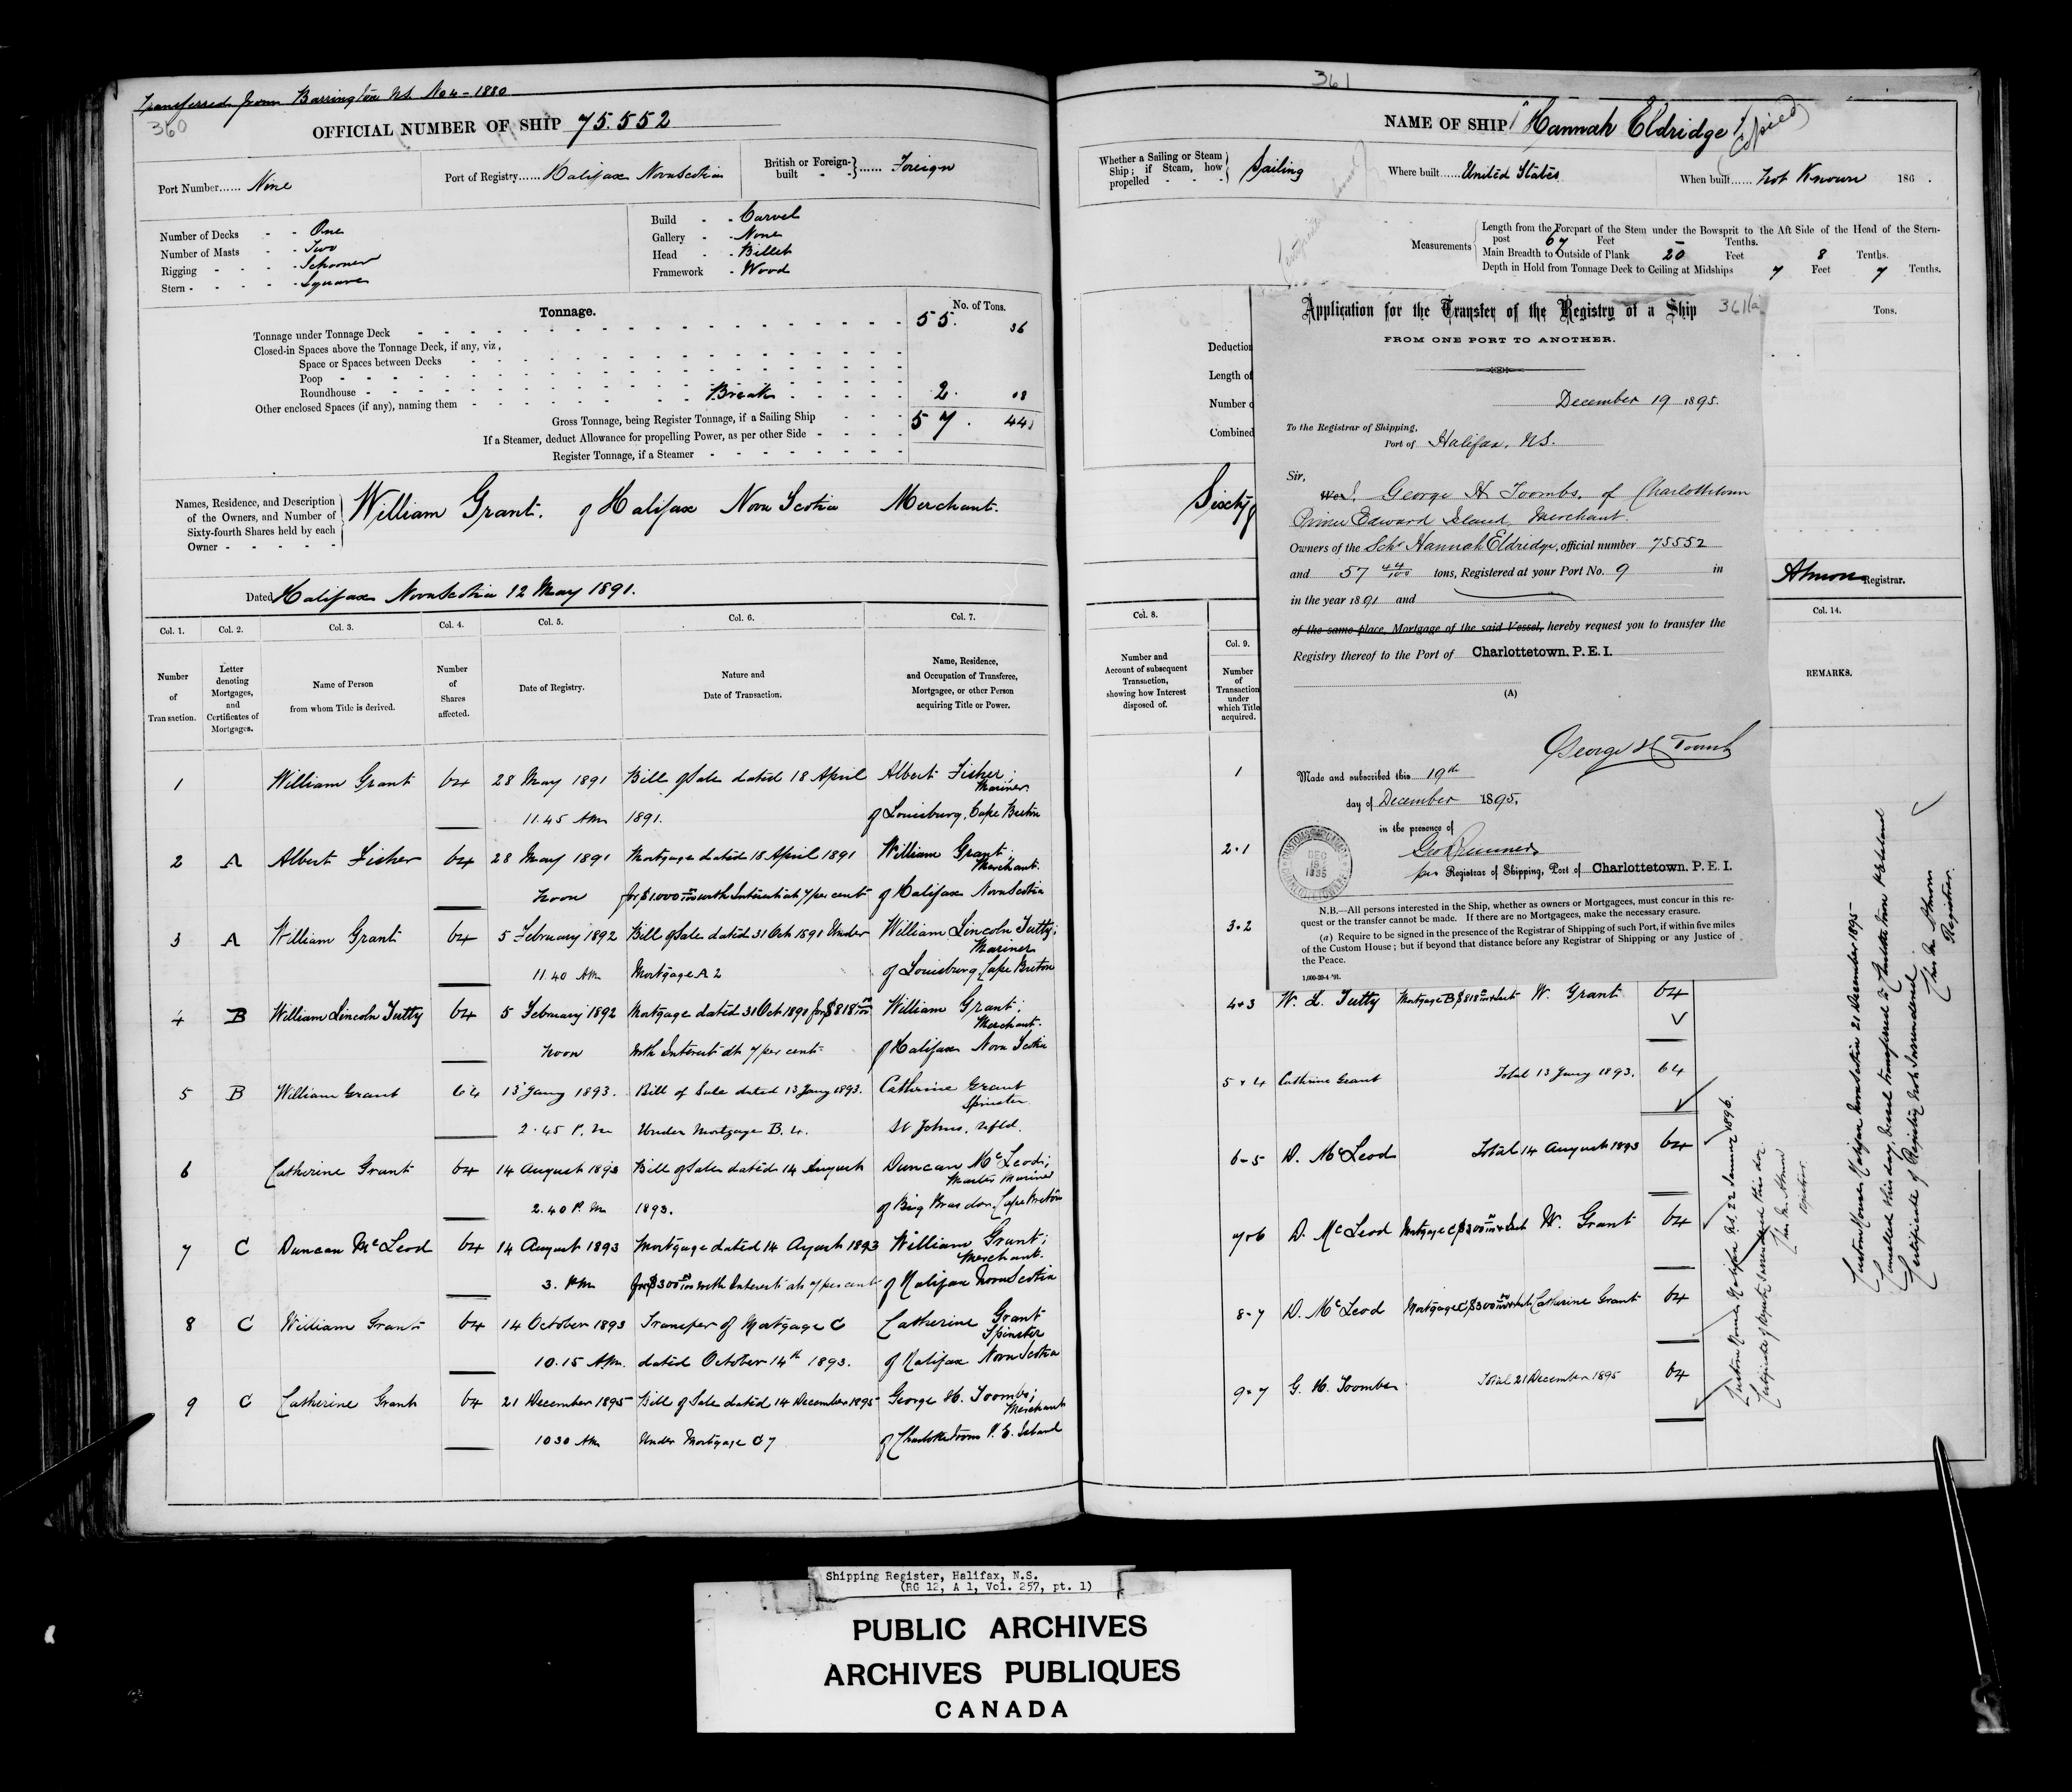 Transferred from Barrington N.S. No 4 - 1880
360
OFFICIAL NUMBER OF SHIP 75.552
Port Number...... Nine
Port of Registry...... Halifax Nova Scotia
British or Foreign-built - - } ...... Foreign
Number of Decks - - One
Number of Masts - - Two
Rigging - - - - Schooner
Stern - - - - - Square
Build - - Carvel
Gallery - - None
Head - - Billet
Framework - Wood
Tonnage.
No. of Tons.
Tonnage under Tonnage Deck 55. 36
Closed-in Spaces above the Tonnage Deck, if any, viz,
Space or Spaces between Decks
Poop
Roundhouse
Other enclosed Spaces (if any), naming them Break 2. 08
Gross Tonnage, being Register Tonnage, if a Sailing Ship 57. 44
If a Steamer, deduct Allowance for propelling Power, as per other Side
Register Tonnage, if a Steamer
Names, Residence, and Description
of the Owners, and Number of
Sixty-fourth Shares held by each
Owner - - - - -
William Grant. of Halifax Nova Scotia Merchant.
Dated Halifax Nova Scotia 12 May 1891.
Col. 1. Col. 2. Col. 3. Col. 4. Col. 5. Col. 6. Col. 7.
Number of Transaction.
Letter denoting Mortgages, and Certificates of Mortgages.
Name of Person from whom Title is derived.
Number of Shares affected.
Date of Registry.
Nature and Date of Transaction.
Name, Residence, and Occupation of Transferee, Mortgagee, or other Person acquiring Title or Power.
1 William Grant 64 28 May 1891 Bill of Sale dated 18 April Albert Fisher; Mariner
11.45 AM 1891. of Louisburg, Cape Breton
2 A Albert Fisher 64 28 May 1891 Mortgage dated 18 April 1891 William Grant; Merchant.
Noon for $1000 00/100 with Interest at 7 per cent of Halifax Nova Scotia
3 A William Grant 64 5 February 1892 Bill of Sale dated 31 Oct 1891 Under William Lincoln Tutty; Mariner
11.40 AM Mortgage A 2 of Louisburg Cape Breton
4 B William Lincoln Tutty 64 5 February 1892 Mortgage dated 31 Oct 1891 for $818 00/100 William Grant; Merchant.
Noon with Interest at 7 per cent of Halifax Nova Scotia
5 B William Grant 64 13 Jany 1893. Bill of Sale dated 13 Jany 1893. Catherine Grant Spinster
2.45 P.M Under Mortgage B. 4. St Johns, Nfld.
6 Catherine Grant 64 14 August 1893 Bill of Sale dated 14 August Duncan McLeod; Master Mariner
2.40 P.M 1893. of Big Bras dor, Cape Breton
7 C Duncan McLeod 64 14 August 1893 Mortgage dated 14 August 1893 William Grant; Merchant.
3. PM for $300 00/100 with Interest at 7 per cent of Halifax Nova Scotia
8 C William Grant 64 14 October 1893 Transfer of Mortgage C Catherine Grant Spinster
10.15 AM. dated October 14th 1893. of Halifax Nova Scotia
9 C Catherine Grant 64 21 December 1895 Bill of Sale dated 14 December 1895 George H. Toombs; Merchant
1030 AM Under Mortgage C 7 of Charlottetown P. E. Island
361
NAME OF SHIP "Hannah Eldridge"
(Copied)
Whether a Sailing or Steam
Ship; if Steam, how
propelled - - -
Sailing
Where built...... United States
When built...... Not Known 186 .
Measurements
Length from the Forepart of the Stem under the Bowsprit to the Aft Side of the Head of the Stern-
post 67 Feet - Tenths.
Main Breadth to Outside of Plank 20 Feet 8 Tenths.
Depth in Hold from Tonnage Deck to Ceiling at Midships 7 Feet 7 Tenths.
Tons.
Deduction
Length of
Number o
Combined
Sixty
Registrar.
Application for the Transfer of the Registry of a Ship 361a
FROM ONE PORT TO ANOTHER.
December 19 1895.
To the Registrar of Shipping,
Port of Halifax, N.S.
Sir,
We I, George H Toombs, of Charlottetown
Prince Edward Island, Merchant.
Owners of the Schr Hannah Eldridge, official number 75552
and 57 44/100 tons, Registered at your Port No. 9 in
in the year 1891 and
of the same place, Mortgage of the said Vessel, hereby request you to transfer the
Registry thereof to the Port of Charlottetown. P. E. I.
(A)
George H Toombs
Made and subscribed this 19th
day of December 1895.
in the presence of
per Registrar of Shipping, Port of Charlottetown. P. E. I.
DEC
1895
N.B.—All persons interested in the Ship, whether as owners or Mortgagees, must concur in this re-
quest or the transfer cannot be made. If there are no Mortgagees, make the necessary erasure.
(a) Require to be signed in the presence of the Registrar of Shipping of such Port, if within five miles
of the Custom House; but if beyond that distance before any Registrar of Shipping or any Justice of
the Peace.
1,000-20-4-'91.
Col. 8. Col. 9. Col. 14.
Number and Account of subsequent Transaction, showing how Interest disposed of.
Number of Transaction under which Title acquired.
REMARKS.
1
2.1
3.2
4+3 W. L. Tutty Mortgage B $818 00/100 + Int W. Grant 64
5+4 Cathrine Grant Total 13 Jany 1893. 64
6-5 D. McLeod Total 14 August 1893 64
7+6 D. McLeod Mortgage C $300 00/100 + Int W. Grant 64
8-7 D. McLeod Mortgage C $300 00/100 + Int Catherine Grant 64
9-7 G. H. Toombs Total 21 December 1895 64
Custom House Halifax N.S. 22 January 1896.
Certificate of Registry surrendered this day
Registrar.
Custom House, Halifax Nova Scotia 21 December 1895
Cancelled this day, vessel transferred to Charlottetown P E Island
Certificate of Registry not surrendered.
Registrar.
Shipping Register, Halifax, N.S.
(RG 12, A 1, Vol. 257, pt. 1)
PUBLIC ARCHIVES
ARCHIVES PUBLIQUES
CANADA